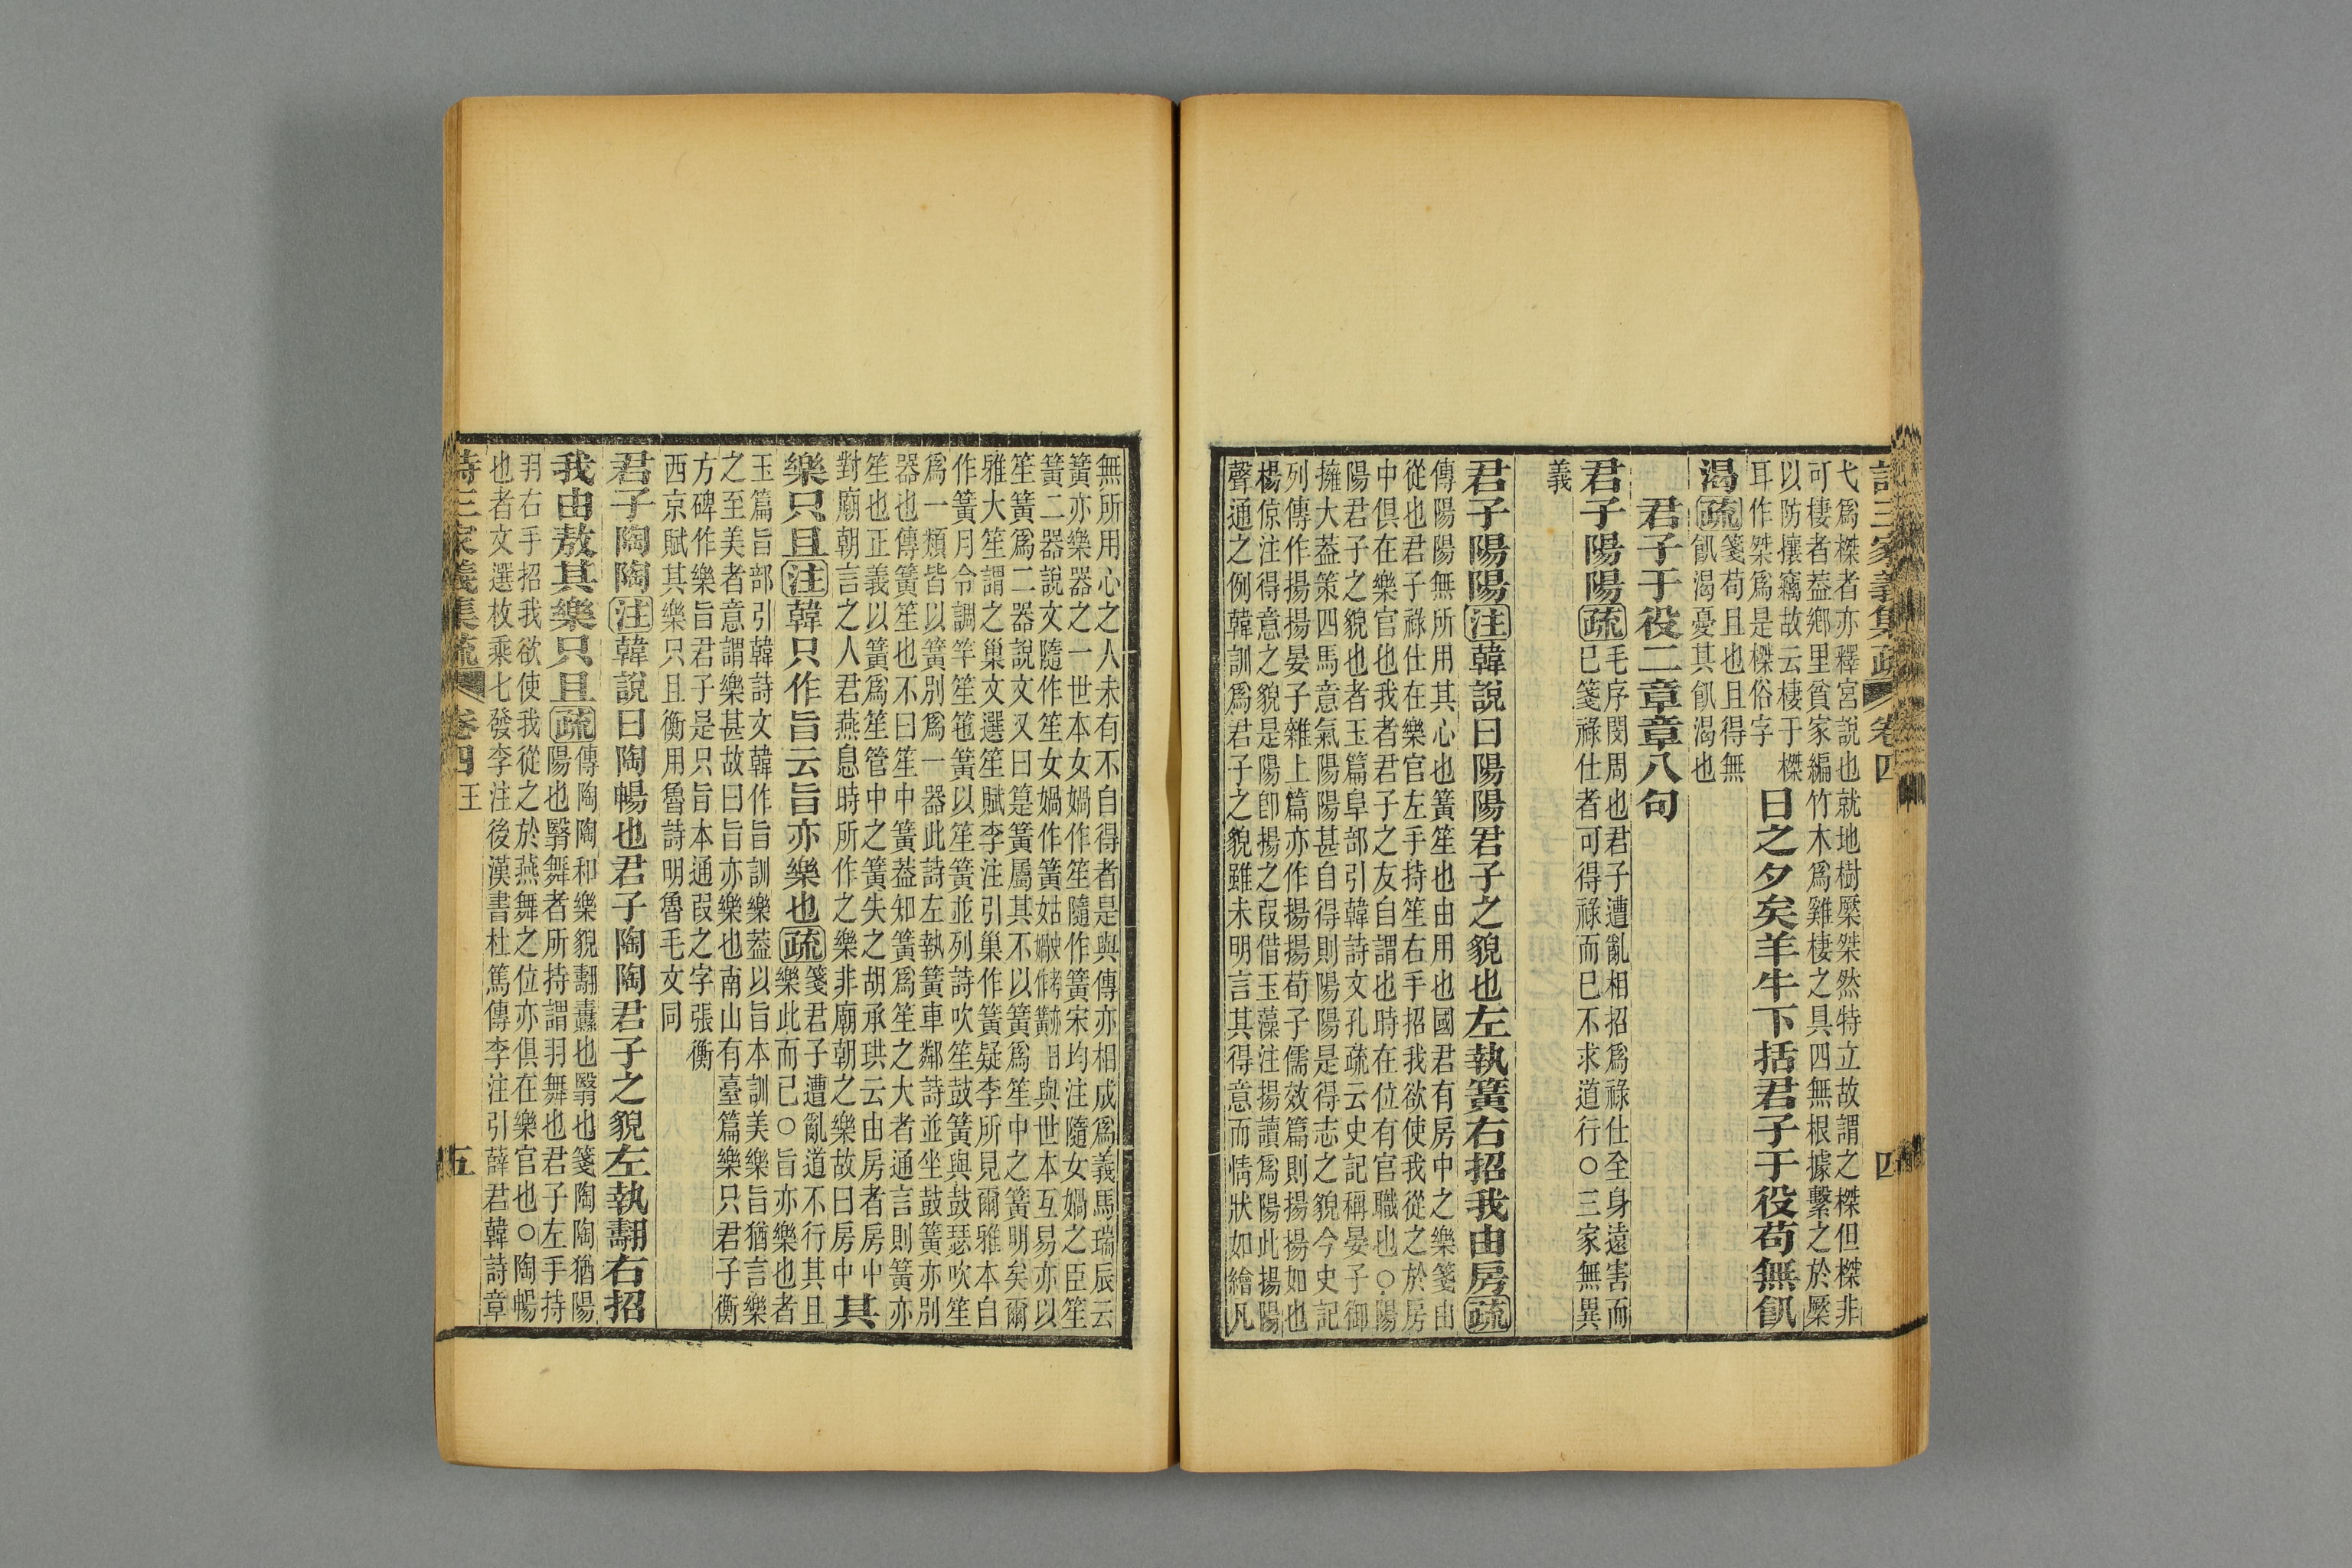 詩三家義集疏 卷四 四
弋爲榤者亦釋宮說也就地樹橜桀然特立故謂之榤但榤非
可棲者葢鄉里貧家編竹木爲雞棲之具四無根據繫之於橜
以防攘竊故云棲于榤
耳作桀爲是榤俗字
日之夕矣羊牛下括君子于役苟無飢
渴疏
箋苟且也且得無
飢渴憂其飢渴也
君子于役二章章八句
君子陽陽疏
毛序閔周也君子遭亂相招爲祿仕全身遠害而
已箋祿仕者可得祿而已不求道行○三家無異
義
君子陽陽注韓說曰陽陽君子之貌也左執簧右招我由房疏
傳陽陽無所用其心也簧笙也由用也國君有房中之樂箋由
從也君子祿仕在樂官左手持笙右手招我欲使我從之於房
中俱在樂官也我者君子之友自謂也時在位有官職也○陽
陽君子之貌也者玉篇阜部引韓詩文孔疏云史記稱晏子御
擁大葢策四馬意氣陽陽甚自得則陽陽是得志之貌今史記
列傳作揚揚晏子雜上篇亦作揚揚荀子儒效篇則揚揚如也
楊倞注得意之貌是陽卽揚之叚借玉藻注揚讀爲陽此揚陽
聲通之例韓訓爲君子之貌雖未明言其得意而情狀如繪凡
無所用心之人未有不自得者是與傳亦相成爲義馬瑞辰云
簧亦樂器之一世本女媧作笙隨作簧宋均注隨女媧之臣笙
簧二器說文隨作笙女媧作簧與世本互易亦以
笙簧爲二器說文又曰篁簧屬其不以簧爲笙中之簧明矣爾
雅大笙謂之巢文選笙賦李注引巢作簧疑李所見爾雅本自
作簧月令調竽笙簧以笙簧並列詩吹笙鼓簧與鼓瑟吹笙
爲一類皆以簧別爲一器此詩左執簧車鄰詩並坐鼓簧亦別
器也傳簧笙也不曰笙中簧葢知簧爲笙之大者通言則簧亦
笙也正義以簧爲笙管中之簧失之胡承珙云由房者房中
對廟朝言之人君燕息時所作之樂非廟朝之樂故曰房中
其
樂只且注韓只作旨云旨亦樂也疏
箋君子遭亂道不行其且
樂此而已○旨亦樂也者
玉篇旨部引韓詩文韓作旨訓樂葢以旨本訓美樂旨猶言樂
之至美者意謂樂甚故曰旨亦樂也南山有臺篇樂只君子衡
方碑作樂旨君子是只旨本通叚之字張衡
西京賦其樂只且衡用魯詩明魯毛文同
君子陶陶注韓說曰陶暢也君子陶陶君子之貌左執翿右招
我由敖其樂只且疏
傳陶陶和樂貌翿纛也翳也箋陶陶猶陽
陽也翳舞者所持謂羽舞也君子左手持
羽右手招我欲使我從之於燕舞之位亦俱在樂官也○陶暢
也者文選枚乘七發李注後漢書杜篤傳李注引薛君韓詩章
詩三家義集疏 卷四 王 五